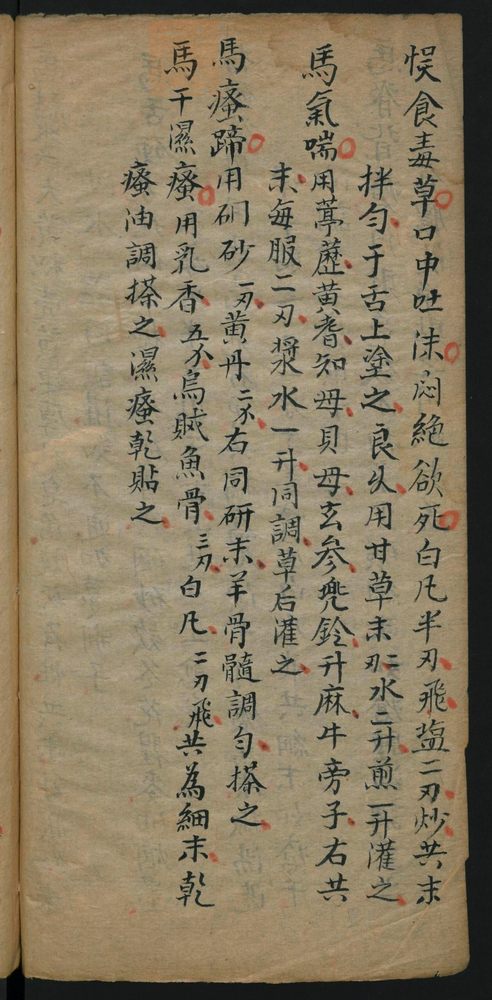 悮食毒草口中吐沫闷絕欲死白凡半刃飛塩二刃炒共末
拌匀于舌上塗之良久用甘草末二刃水二升煎一升灌之
馬氣喘用葶藶黃耆知母貝母玄参兜鈴升麻牛旁子右共
末每服二刃漿水一升同調草后灌之
馬瘙蹄用硇砂一刃黄丹二不右同研末羊骨髓調匀搽之
馬干濕瘙用乳香五不烏賊魚骨三刃白凡二刃飛共為細末乾
瘙油調搽之濕瘙乾貼之